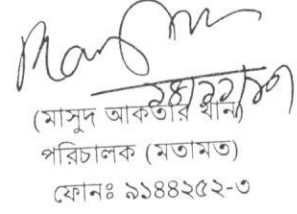 (মাসুদ আকতার খান)
পরিচালক (মতামত)
ফোনঃ ৯১৪৪২৫২-৩